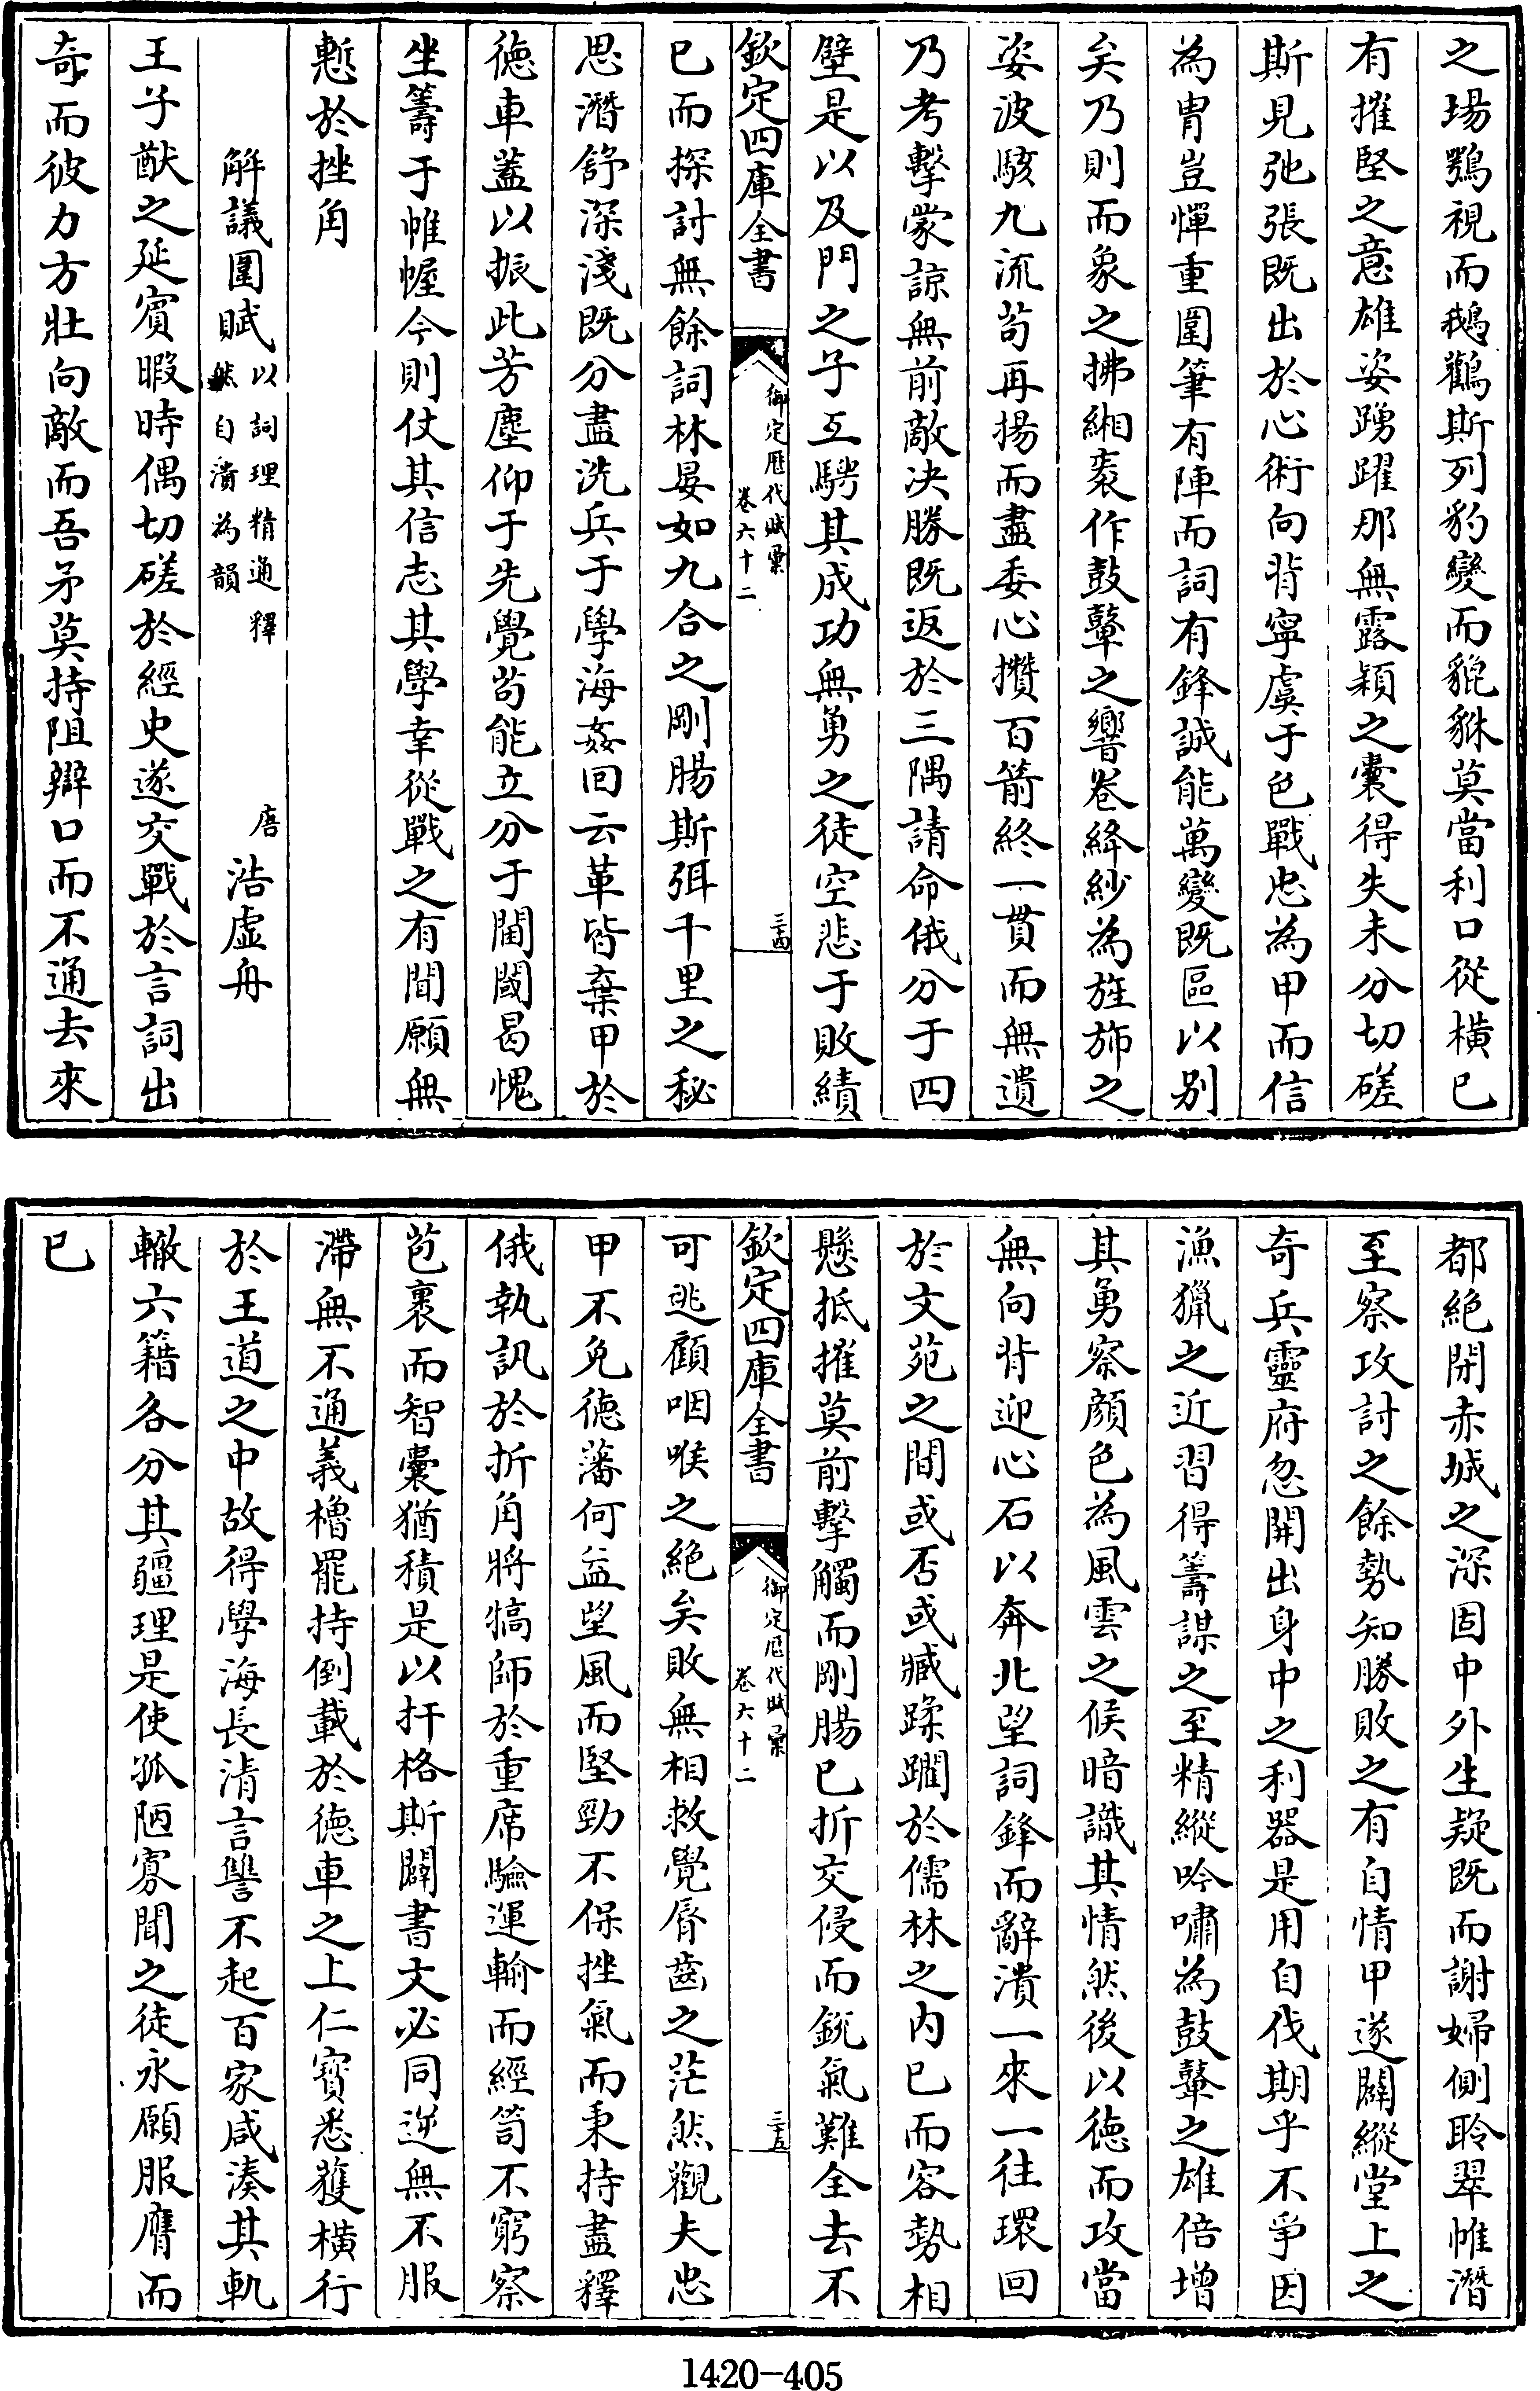 之場鶚視而鵝鸛斯列豹變而貔貅莫當利口從橫已
有摧堅之意雄姿踴躍那無露穎之囊得失未分切磋
斯見弛張既出於心術向背寧虞于色戰忠為甲而信
為冑豈憚重圍筆有陣而詞有鋒誠能萬變既區以别
矣乃則而象之拂緗袠作鼓鼙之響卷絳紗為旌斾之
姿波駭九流苟再揚而盡委心攢百箭終一貫而無遺
乃考擊蒙諒無前敵决勝既返於三隅請命俄分于四
壁是以及門之子互騁其成功無勇之徒空悲于敗績
欽定四庫全書
御定歷代賦彙
卷六十二
三十四
已而探討無餘詞林晏如九合之剛腸斯弭千里之秘
思潛舒深淺既分盡洗兵于學海姦回云革皆棄甲於
德車蓋以振此芳塵仰于先覺苟能立分于閫閾曷愧
坐籌于帷幄今則仗其信志其學幸從戰之有間願無
慙於挫角
解議圍賦 以詞理精通釋
然自潰為韻
唐 浩虛舟
王子猷之延賓暇時偶切磋於經史遂交戰於言詞出
奇而彼力方壯向敵而吾矛莫持阻辯口而不通去來
都絕閉赤城之深固中外生疑既而謝婦側聆翠帷潛
至察攻討之餘勢知勝敗之有自情甲遂闢縱堂上之
奇兵靈府忽開出身中之利器是用自伐期乎不爭因
漁獵之近習得籌謀之至精縱吟嘯為鼓鼙之雄倍增
其勇察顔色為風雲之候暗識其情然後以德而攻當
無向背迎心石以奔北望詞鋒而辭潰一來一往環回
於文苑之間或否或臧蹂躙於儒林之內已而容勢相
懸抵摧莫前擊觸而剛腸已折交侵而銳氣難全去不
欽定四庫全書
御定歷代賦彙
卷六十二
三十五
可逃顧咽喉之絕矣敗無相救覺脣齒之茫然觀夫忠
甲不免德藩何益望風而堅勁不保挫氣而秉持盡釋
俄執訊於折角將犒師於重席驗運輸而經笥不窮察
苞裹而智囊猶積是以扞格斯闢書文必同逆無不服
滯無不通義櫓罷持倒載於德車之上仁寶悉獲橫行
於王道之中故得學海長清言讐不起百家咸湊其軌
轍六籍各分其疆理是使孤陋寡聞之徒永願服膺而
已
1420-405